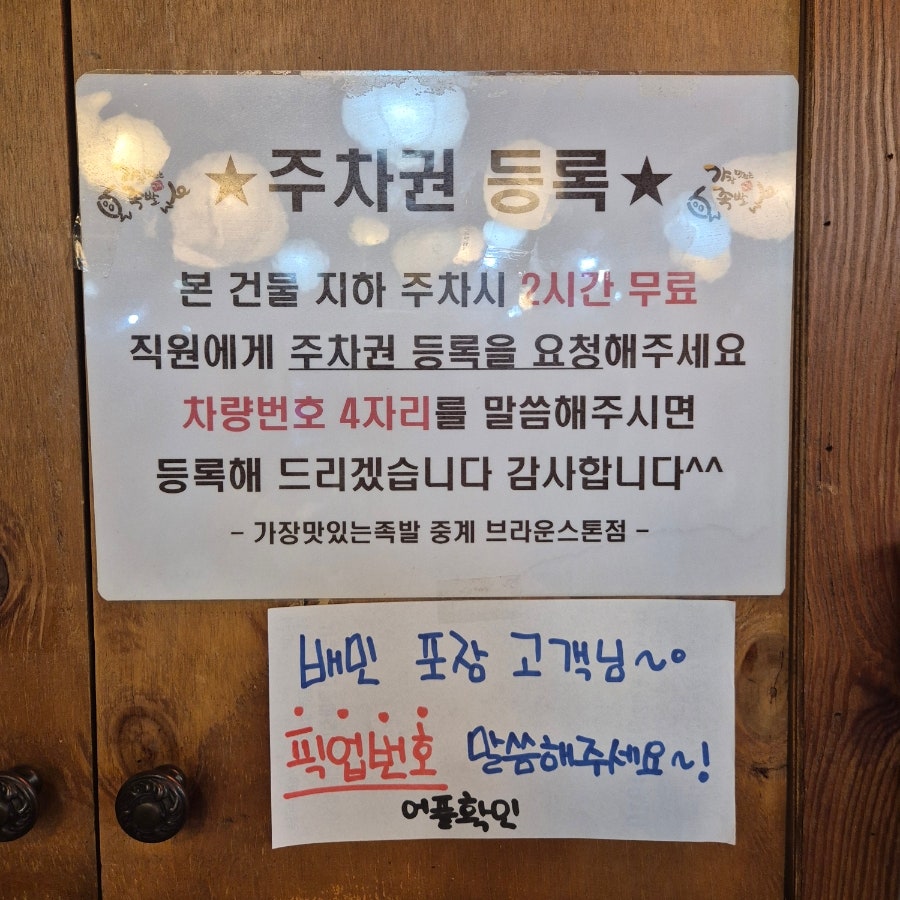 ★주차권 등록★
가장 맛있는 족발
가장 맛있는 족발
본 건물 지하 주차시 2시간 무료
직원에게 주차권 등록을 요청해주세요
차량번호 4자리를 말씀해주시면
등록해 드리겠습니다 감사합니다^^
- 가장맛있는족발 중계 브라운스톤점 -
배민 포장 고객님~
픽업번호 말씀해주세요~!
어플확인